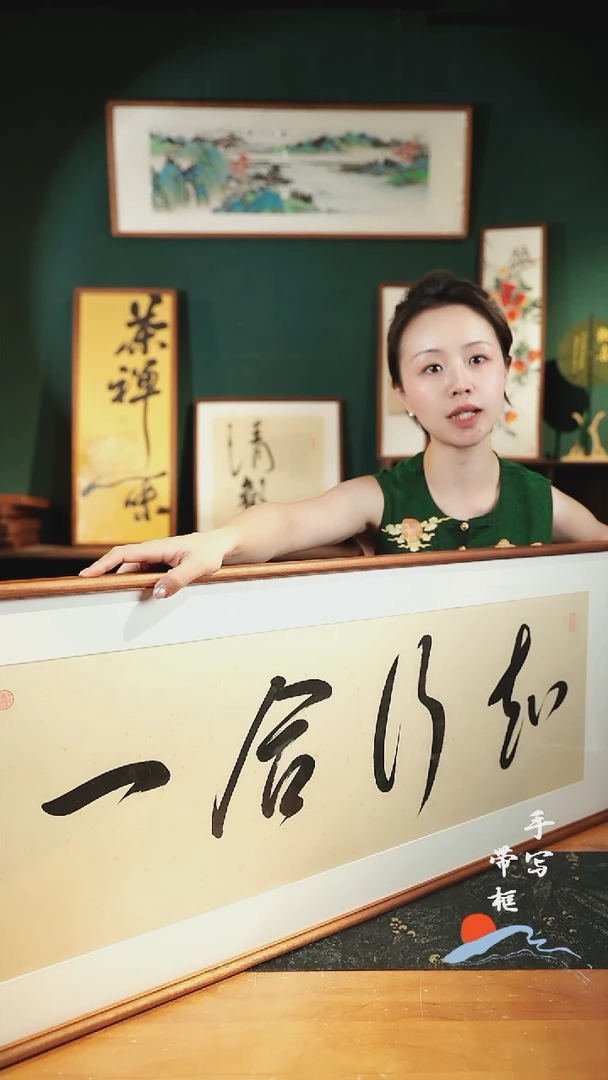 茶禅一味
清
知行合一
手写
带框